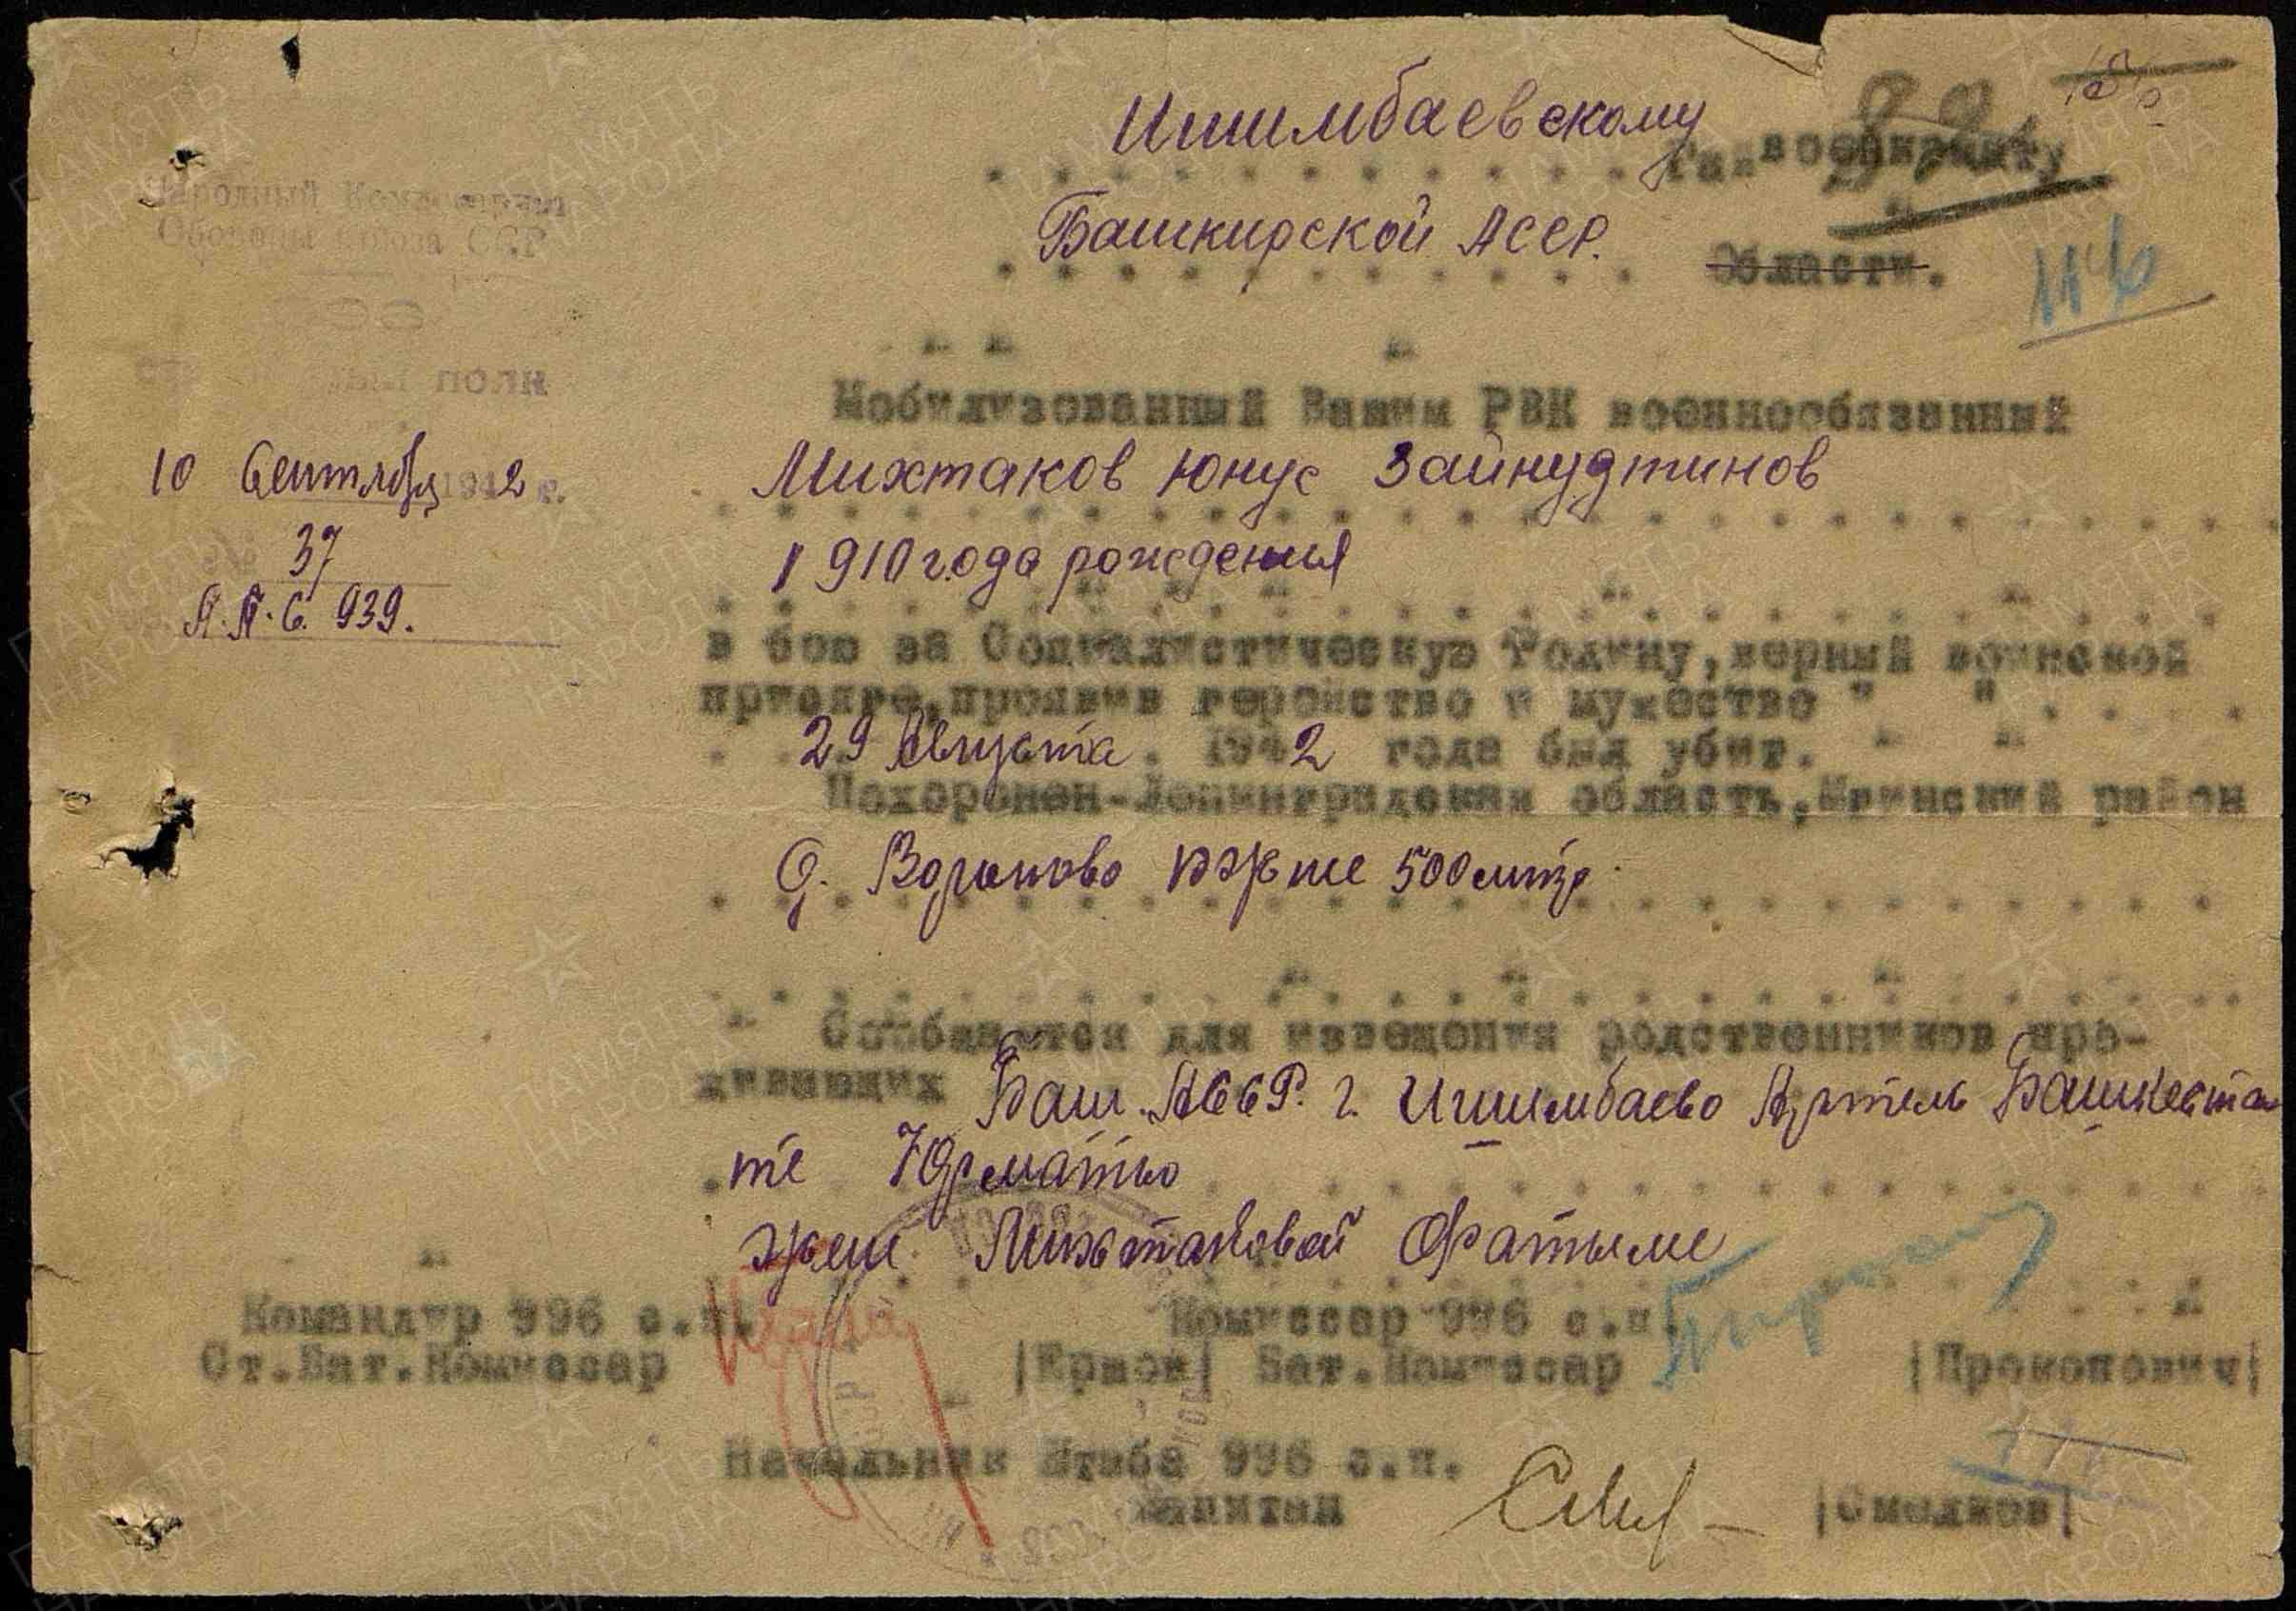 Ишимбаевскому Райвоенкомату
Башкирской АССР. Области.
116
Народный Комиссариат
Обороны Союза ССР
полк
10 Сентября 1942 г.
37
П.П.С. 939.
Мобилизованный Вашим РВК военнообязанный
Михтаков Юнус Зайнудтинов
1910 года рождения
в бою за Социалистическую Родину, верный воинской
присяге, проявив геройство и мужество " "
29 Августа. 1942 года был убит.
Похоронен-Ленинградская область, Мгинский район
д. Вороново 500 митр.
Сообщается для изведения родственников про-
живающих Баш. АССР. г. Ишимбаево Артель
те Юрматы
жене Михтаковой Фатыме
Командир 996 с.п. Комиссар 996 с.п.
Ст.Бат.Комиссар Бат.Комиссар |Прокопович|
Начальник Штаба 996 с.п.
Капитан |Смалков|
ПАМЯТЬ НАРОДА